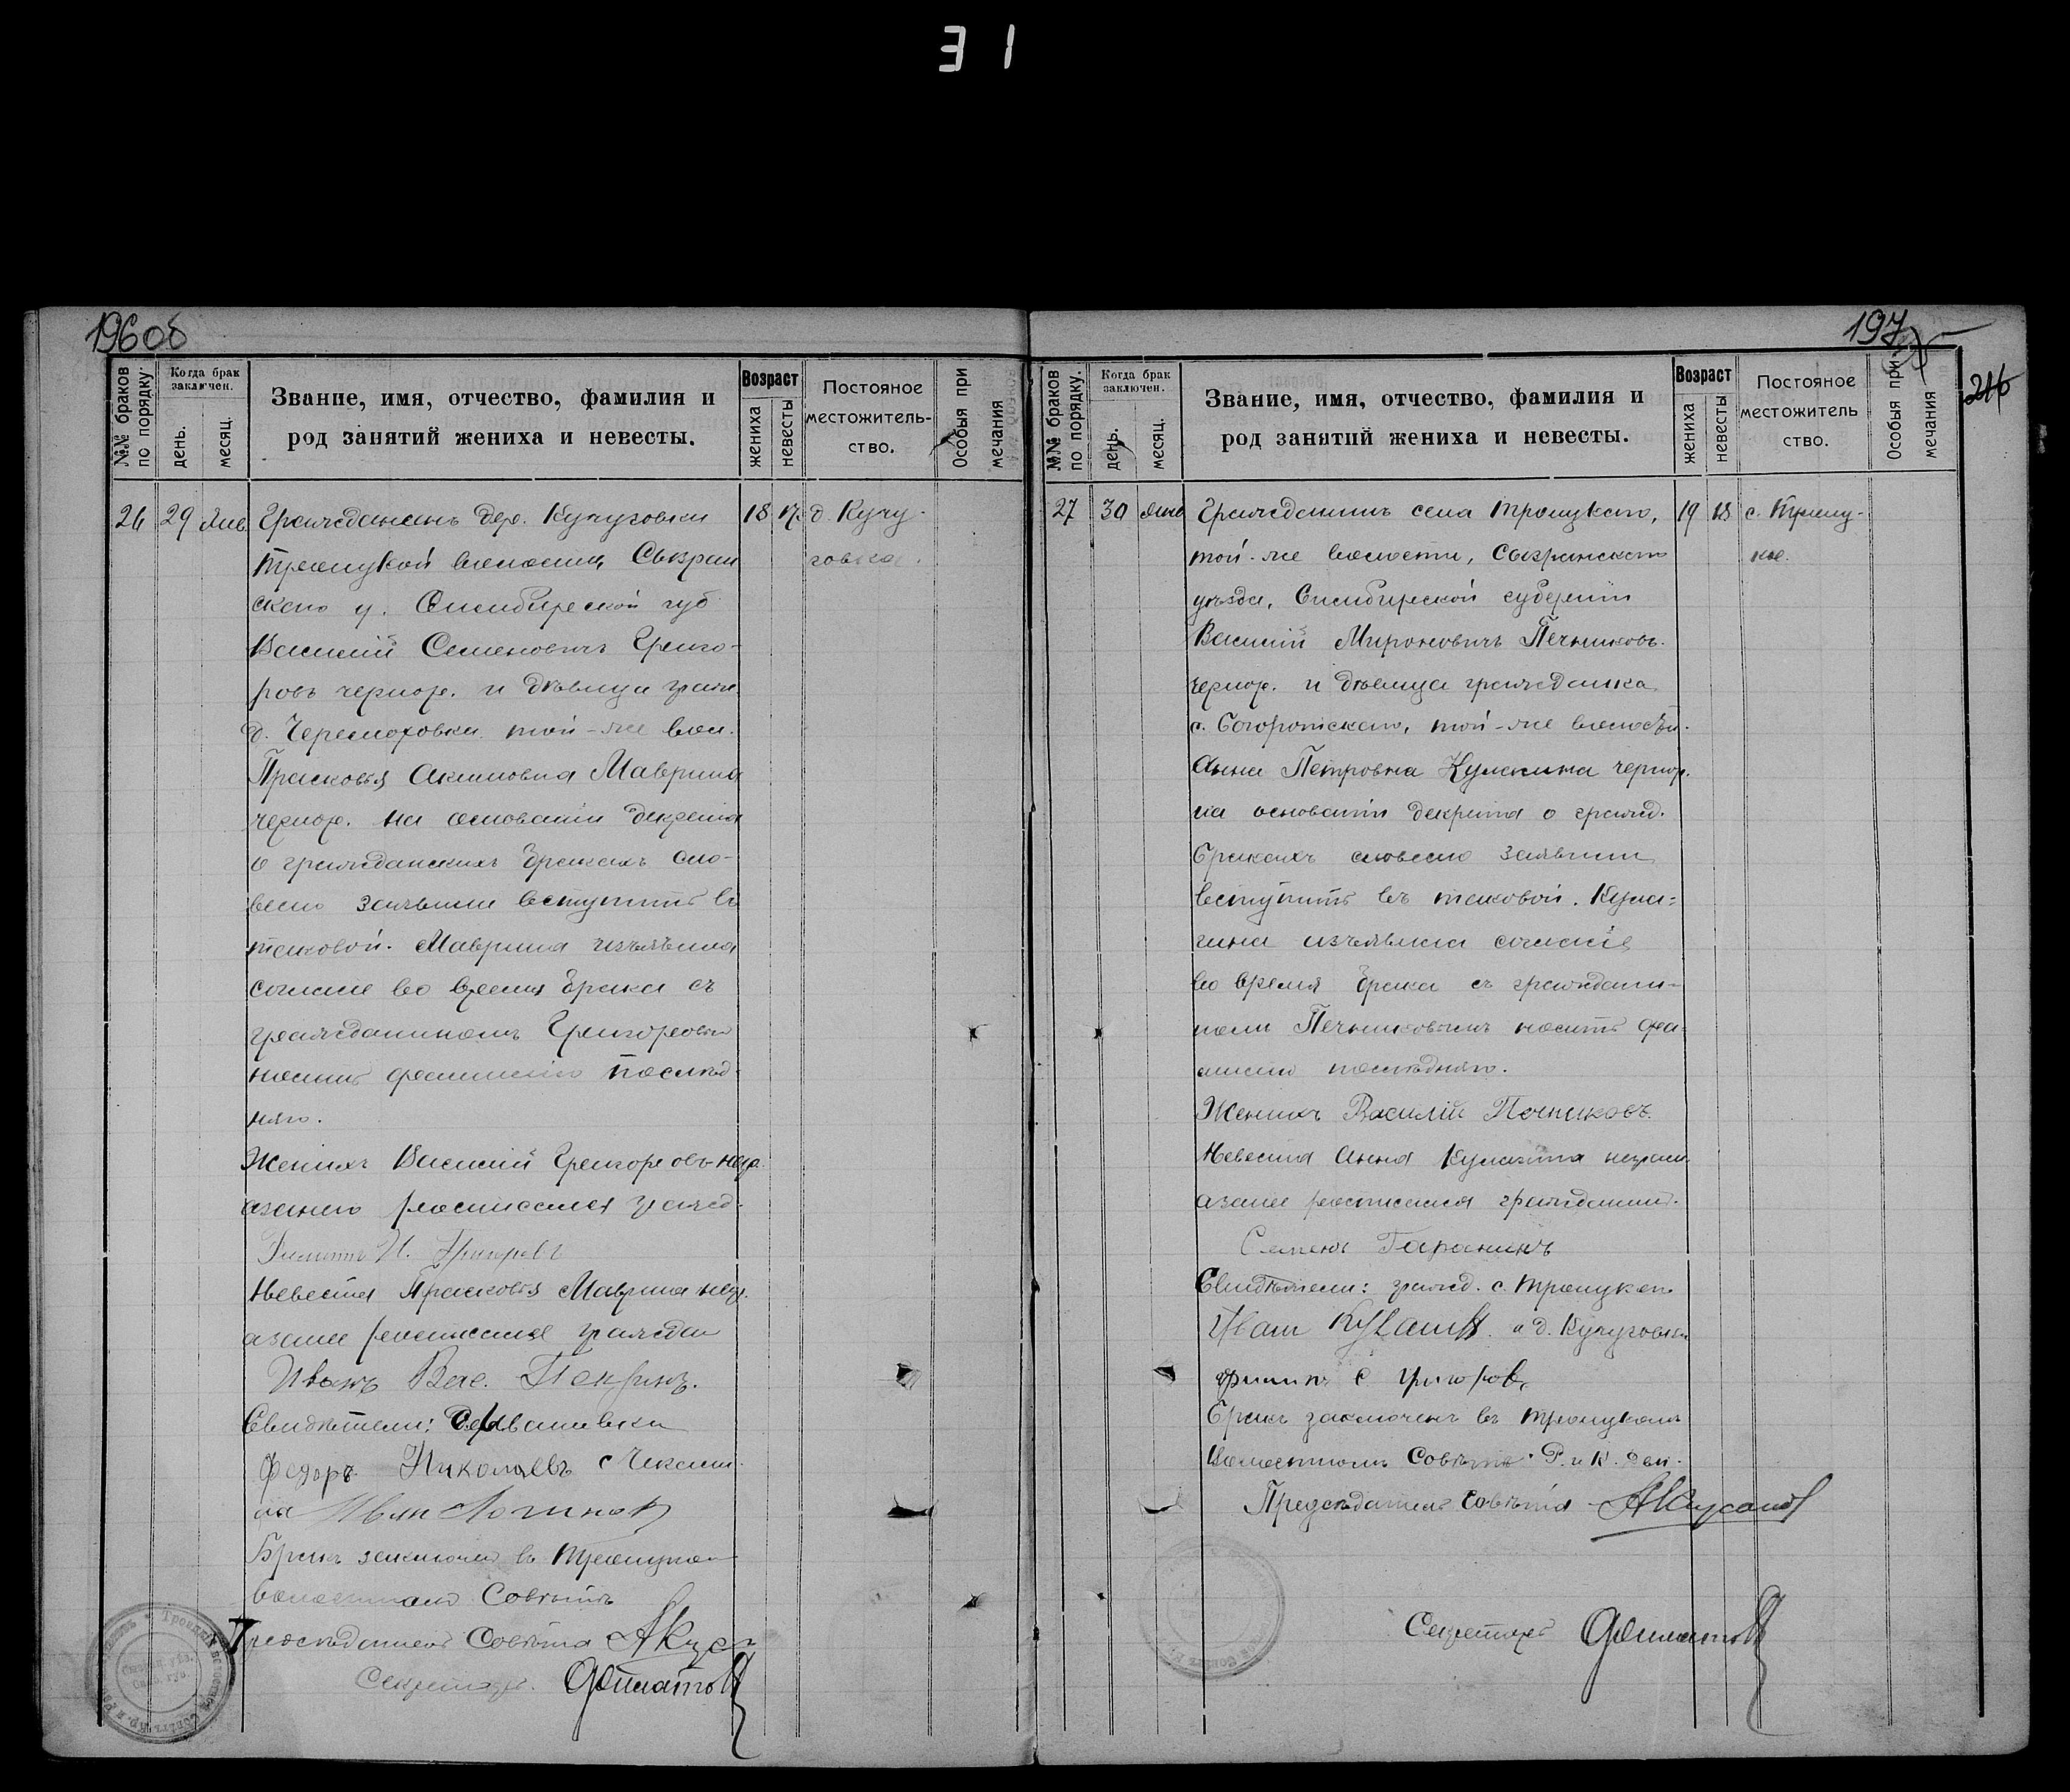 31
196об
№№ браков по порядку.
Когда брак заключен.
день.
месяц.
Звание, имя, отчество, фамилия и
род занятий жениха и невесты.
Возраст
жениха
невесты
Постояное
местожитель-
ство.
Особыя при
мечания
26 29 Янв. Гражданинъ дер. Кучуговки 18 17 д. Кучу-
Троицкой волости, Сызран говка.
скаго у. Симбирской губ.
Василий Семеновичъ Григо-
ровъ чернор. и девица граж.
д. Черемоховки той-же вол.
Прасковья Акимовна Маврина
чернор. на основании декрета
о гражданскихъ бракахъ сло-
весно заявили вступить въ
таковой. Маврина изъявила
согласие во время брака съ
гражданиномъ Григоровым
носить фамилию послѣд-
няго.
Женихъ Василий Григоровъ негр.
а за него росписался гражд.
Филиппъ И. Григоровъ
Невеста Прасковья Маврина негр.
а за нее росписался граждан
Иванъ Вас.
Свидѣтели: Ивашевки
Федоръ Николаевъ с
на Иван Логинов
Бракъ заключен въ Троицком
волостномъ Совѣтѣ
Председатель Совѣта
Секретарь.
197
216
№№ браков по порядку.
Когда брак заключен.
день.
месяц.
Звание, имя, отчество, фамилия и
род занятий жениха и невесты.
Возраст
жениха
невесты
Постояное
местожитель
ство.
Особыя при
мечания
27 30 Янв Гражданинъ села Троицкаго, 19 18 с. Троиц-
той-же волости, Сызранскаго кое.
уѣзда, Симбирской губернии
Василий Мироновичъ Печниковъ.
чернор. и дѣвица гражданка
с. Богородскаго, той-же волости.
Анна Петровна Кулагина чернор.
на основании декрета о гражд.
бракахъ словесно заявили
вступить въ таковой. Кула=
гина изъявила согласие
во время брака съ граждани-
номъ Печниковымъ носить фа-
милию послѣдняго.
Женихъ Василій Печниковъ.
Невеста Анна Кулагина неграм.
а за нее росписался гражданин.
Семенъ Гаранинъ
Свидѣтели: гражд. с. Троицкаго
Иван и д. Кучуговки
Филипъ С Григоров,
Бракъ заключенъ въ Троицкомъ
Волостномъ Совѣтѣ Р. и К. Деп.
Председатель Совѣта
Секретарь